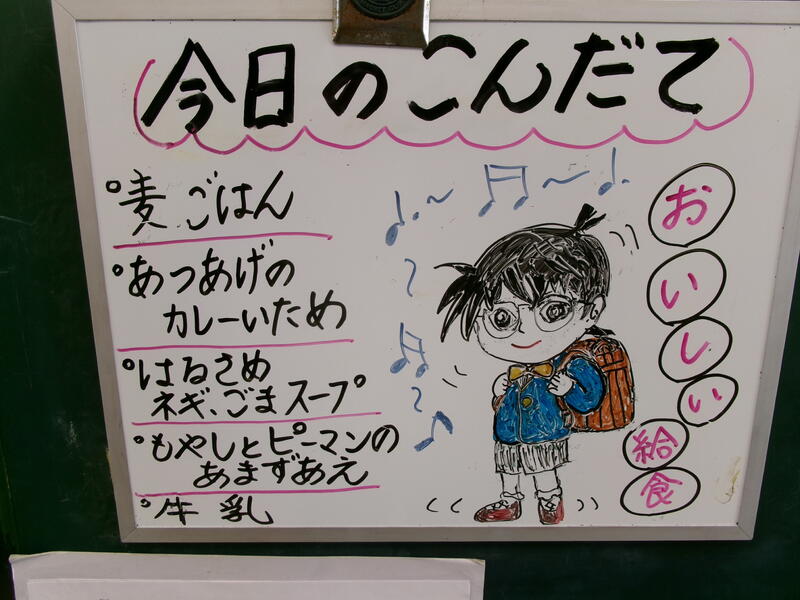 今日のこんだて
麦ごはん
あつあげの
カレーいため
はるさめ
ネギ、ごまスープ
もやしとピーマンの
あまずあえ
牛乳
おいしい
給食